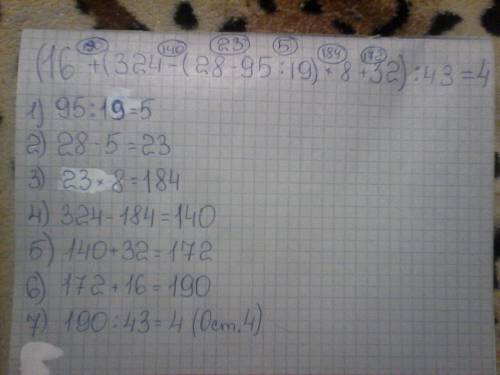 190 140 23 5 184 172
(16 +(324-(28-95:19)×8+32):43=4
1) 95:19=5
2) 28-5=23
3) 23×8=184
4) 324-184=140
5) 140+32=172
6) 172+16=190
7) 190:43=4 (Ост.4)